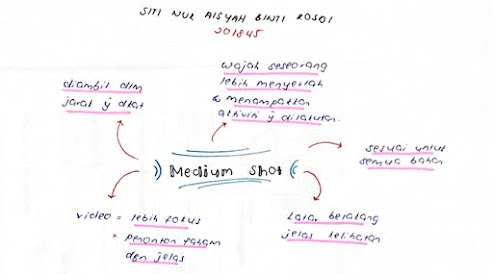 SITI NUR AISYAH BINTI ROSDI
201845
wajah seseorang
lebih menyerlah
& menampakkan
aktiviti y dilakukan.
diambil dlm
jarak y dkat
sesuai untuk
semua bahan
Medium shot
video = lebih fokus
* penonton faham
dgn jelas
Latar belakang
jelas kelihatan